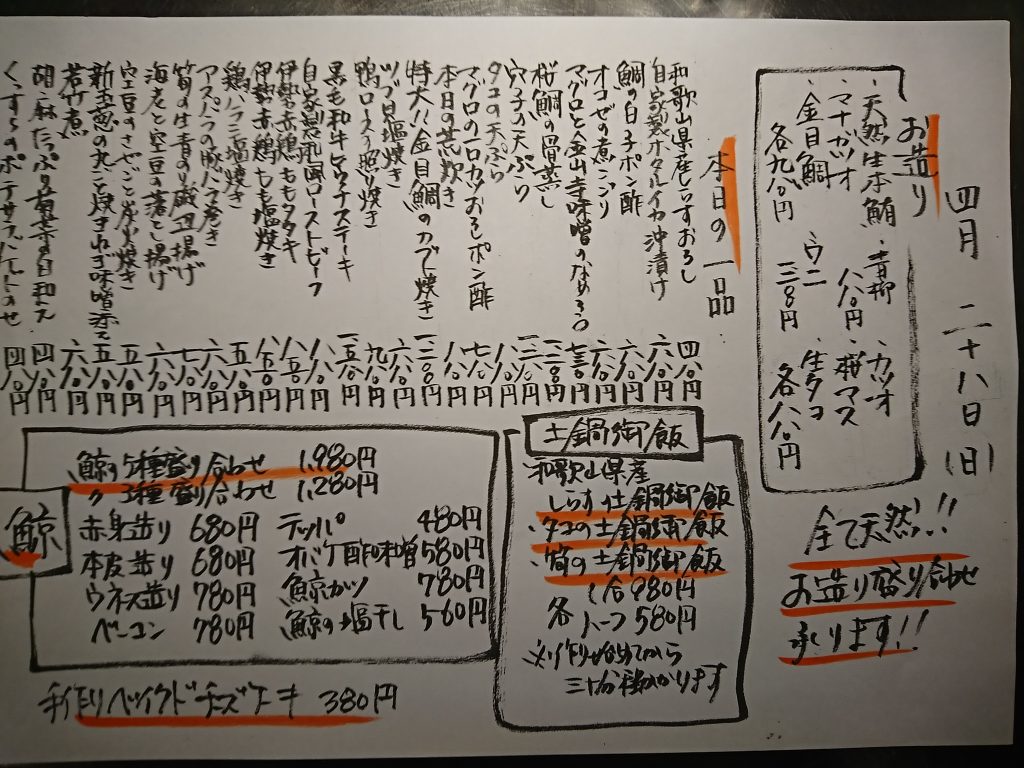 四月 二十八日(日)
お造り
・天然生本鮪 ・青柳 ・カツオ
・マナガツオ 八八〇円 ・桜マス
・金目鯛 ・ウニ ・生タコ
各九八〇円 一二八〇円 各八八〇円
全て天然!!
お造り盛り合わせ
承ります!!
本日の一品
和歌山県産しらすおろし 四八〇円
自家製ホタルイカ沖漬け 六八〇円
鯛の白子ポン酢 六八〇円
オコゼの煮こごり 六八〇円
マグロと金山寺味噌のなめろう 七三〇円
桜鯛の骨蒸し
穴子の天ぷら
タコの天ぷら 七八〇円
マグロの一口カツおろしポン酢 八八〇円
本日の荒炊き
特大!!金目鯛のカブト焼き
ツブ貝塩焼き 六八〇円
鴨ロースの照焼き 九八〇円
黒毛和牛イチボステーキ
自家製和風ローストビーフ
伊勢赤鶏ももタタキ 八五〇円
伊勢赤鶏もも塩焼き 八五〇円
鶏ハラミ塩焼き 五八〇円
アスパラの豚バラ巻き 六八〇円
筍の生青のり磯辺揚げ 七八〇円
海老と空豆の落とし揚げ 六八〇円
空豆のさやごと炭火焼き 五八〇円
新玉葱の丸ごと焼きねぎ味噌添え 五八〇円
若竹煮 六八〇円
胡麻たっぷり菊菜の白和え 四八〇円
くつろぎのポテサラバケットのせ 四八〇円
土鍋御飯
和歌山県産
・しらす土鍋御飯
・タコの土鍋御飯
・筍の土鍋御飯
各 一合980円
ハーフ580円
※作り始めてから
三十分程かかります
鯨
鯨の5種盛り合わせ 1,980円
〃 3種盛り合わせ 1,280円
赤身造り 680円 テッパ 480円
本皮造り 680円 オバケ酢味噌 580円
ウネス造り 780円 鯨カツ 780円
ベーコン 780円 鯨の塩干し 560円
手作りベイクドチーズケーキ 380円